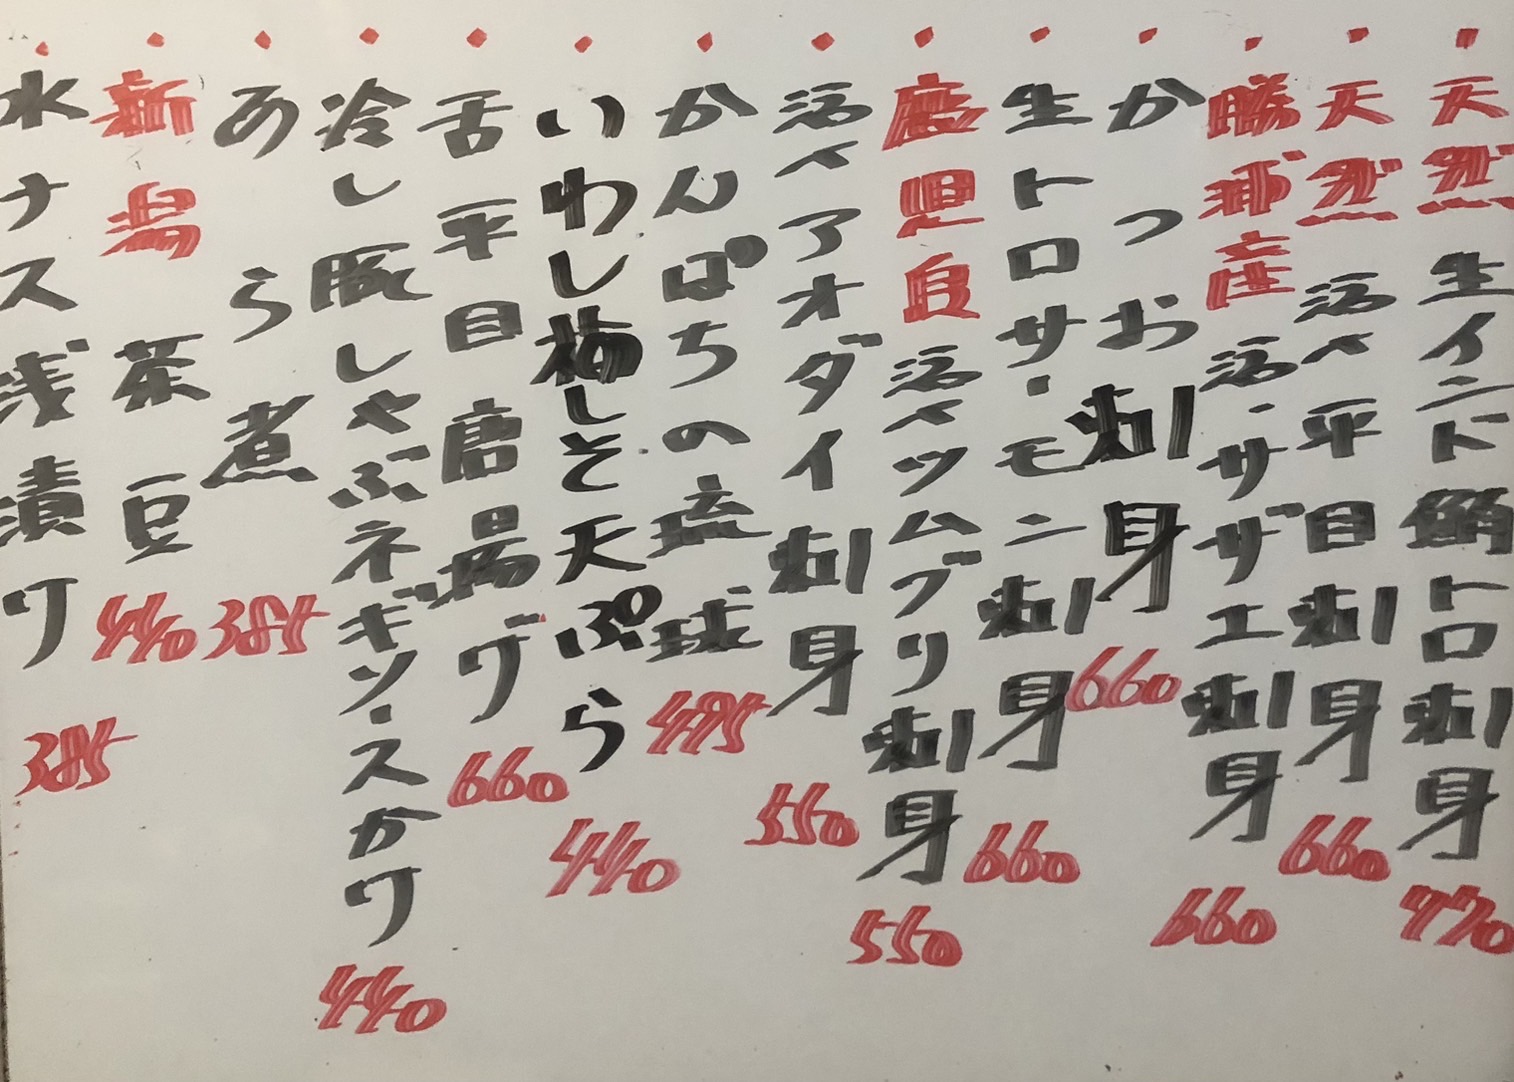 天然 生インド鮪トロ刺身 770
天然 活〆平目刺身 660
勝浦産 活・サザエ刺身 660
かつお刺身 660
生トロサーモン刺身 660
鹿児島 活〆ツムブリ刺身 550
活〆アオダイ刺身 550
かんぱちの琉球 495
いわし梅しそ天ぷら 440
舌平目唐揚げ 660
冷し豚しゃぶネギソースかけ 440
あら煮 385
新潟 茶豆 440
水ナス浅漬け 385